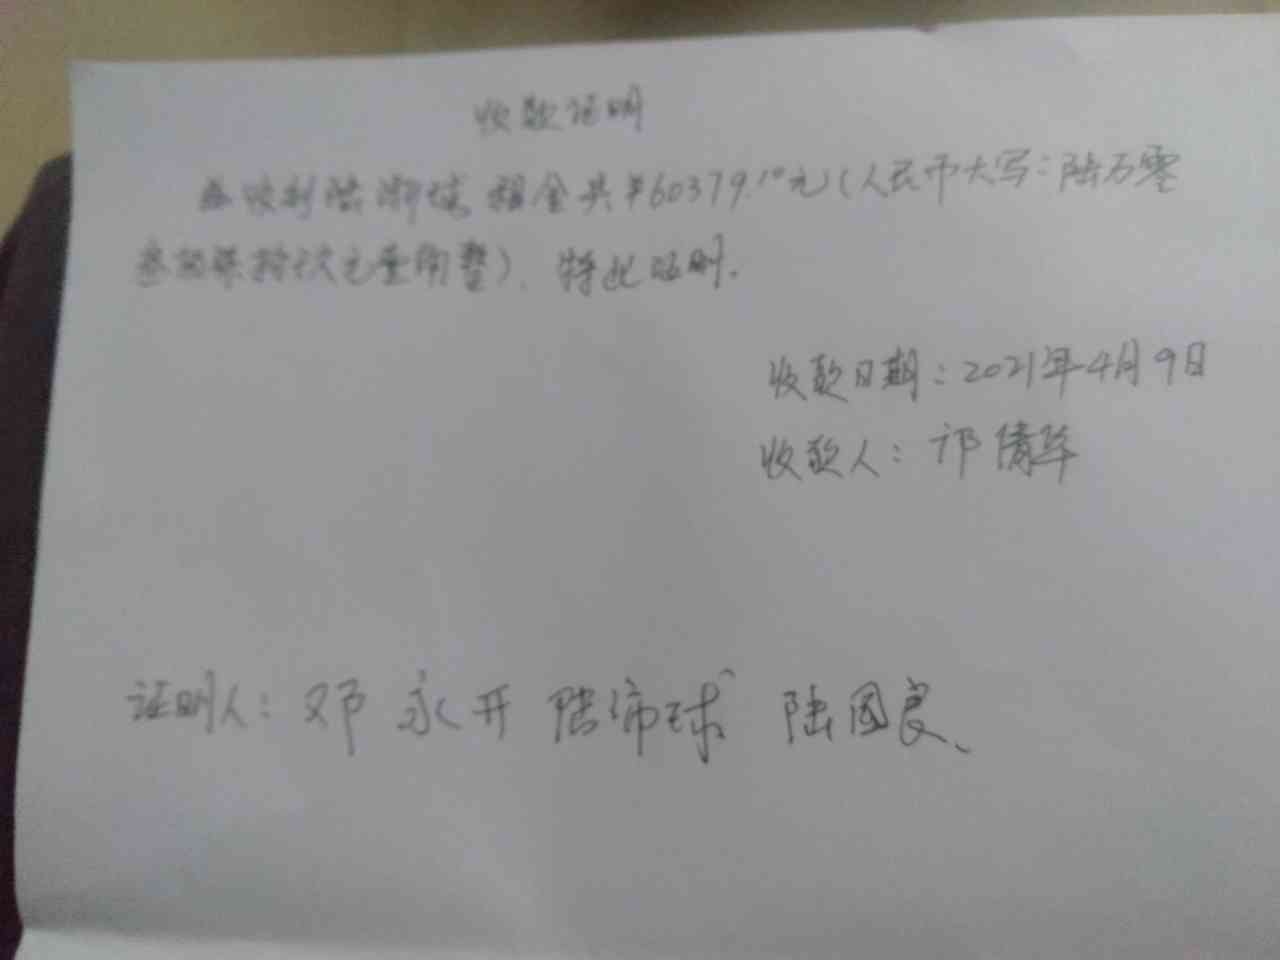 收款证明
收到陆 租金共¥60379.10元(人民币大写:陆万零
叁佰柒拾玖元壹角整),特此证明.
收款日期:2021年4月9日
收款人:
证明人:邓永开 陆沛球 陆国良、